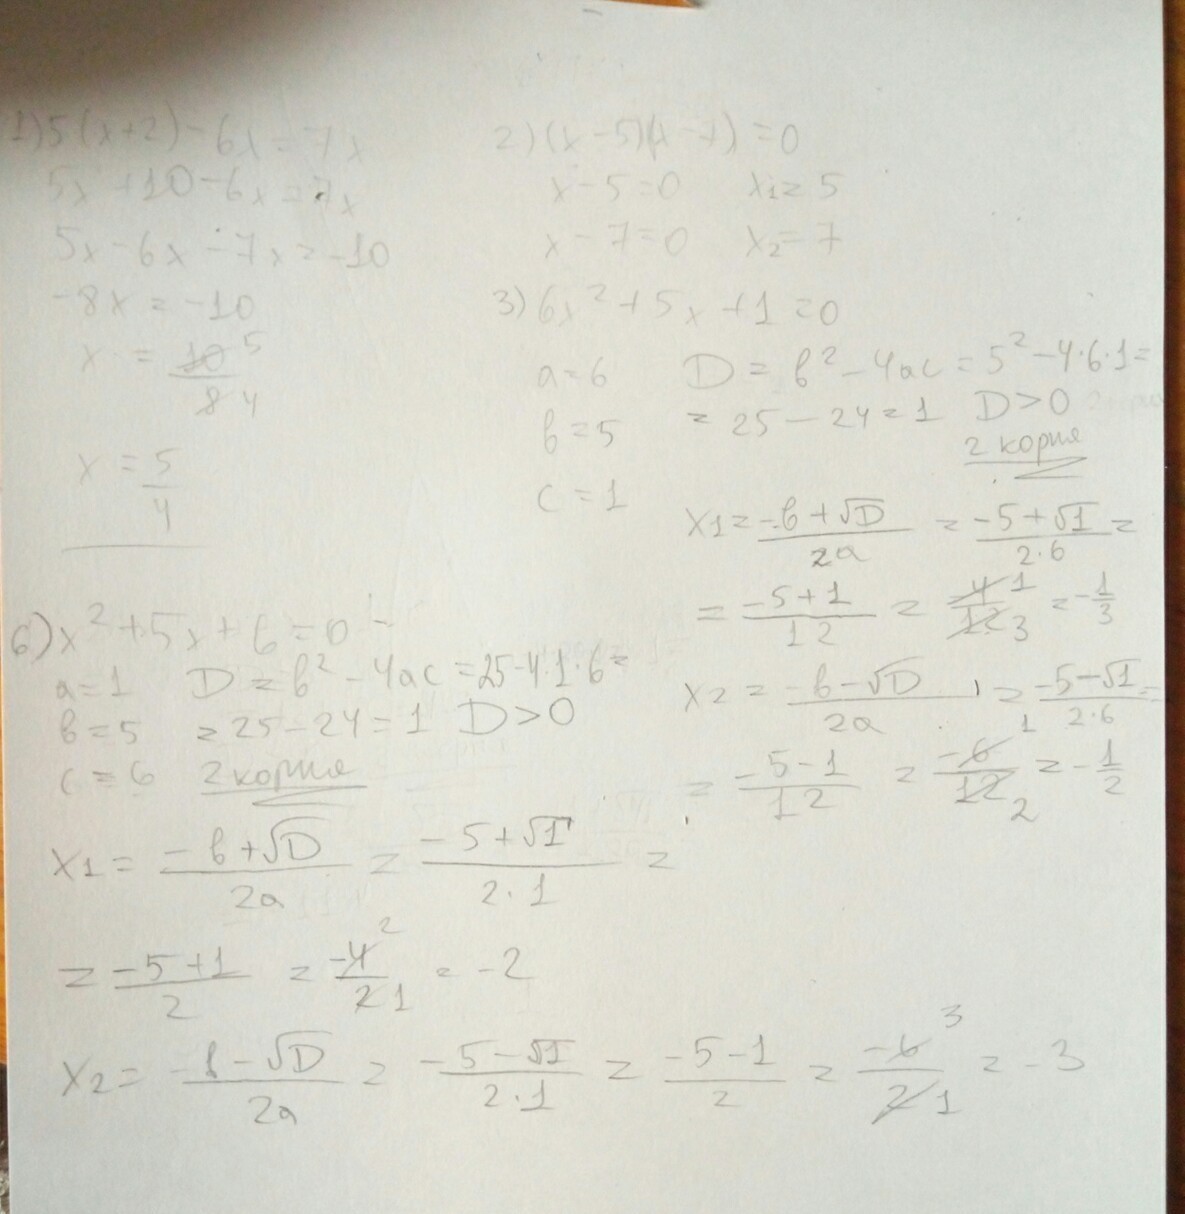 1) 5(x+2) - 6x = 7x
5x + 10 - 6x = 7x
5x - 6x - 7x = -10
-8x = -10
x = 10 5 / 8 4
x = 5/4
2) (x - 5)(x - 7) = 0
x - 5 = 0 x1 = 5
x - 7 = 0 x2 = 7
3) 6x² + 5x + 1 = 0
a = 6
в = 5
c = 1
D = в² - 4ac = 5² - 4·6·1 =
= 25 - 24 = 1 D > 0
2 корня
x1 = -в + √D / 2a = -5 + √1 / 2·6 =
= -5 + 1 / 12 = -4 1 / 12 3 = -1/3
x2 = -в - √D / 2a = -5 - √1 / 2·6 =
= -5 - 1 / 12 = -6 1 / 12 2 = -1/2
6) x² + 5x + 6 = 0
a = 1 D = в² - 4ac = 25 - 4·1·6 =
в = 5 = 25 - 24 = 1 D > 0
c = 6 2 корня
x1 = -в + √D / 2a = -5 + √1 / 2·1 =
= -5 + 1 / 2 = -4 2 / 2 1 = -2
x2 = -в - √D / 2a = -5 - √1 / 2·1 = -5 - 1 / 2 = -6 3 / 2 1 = -3